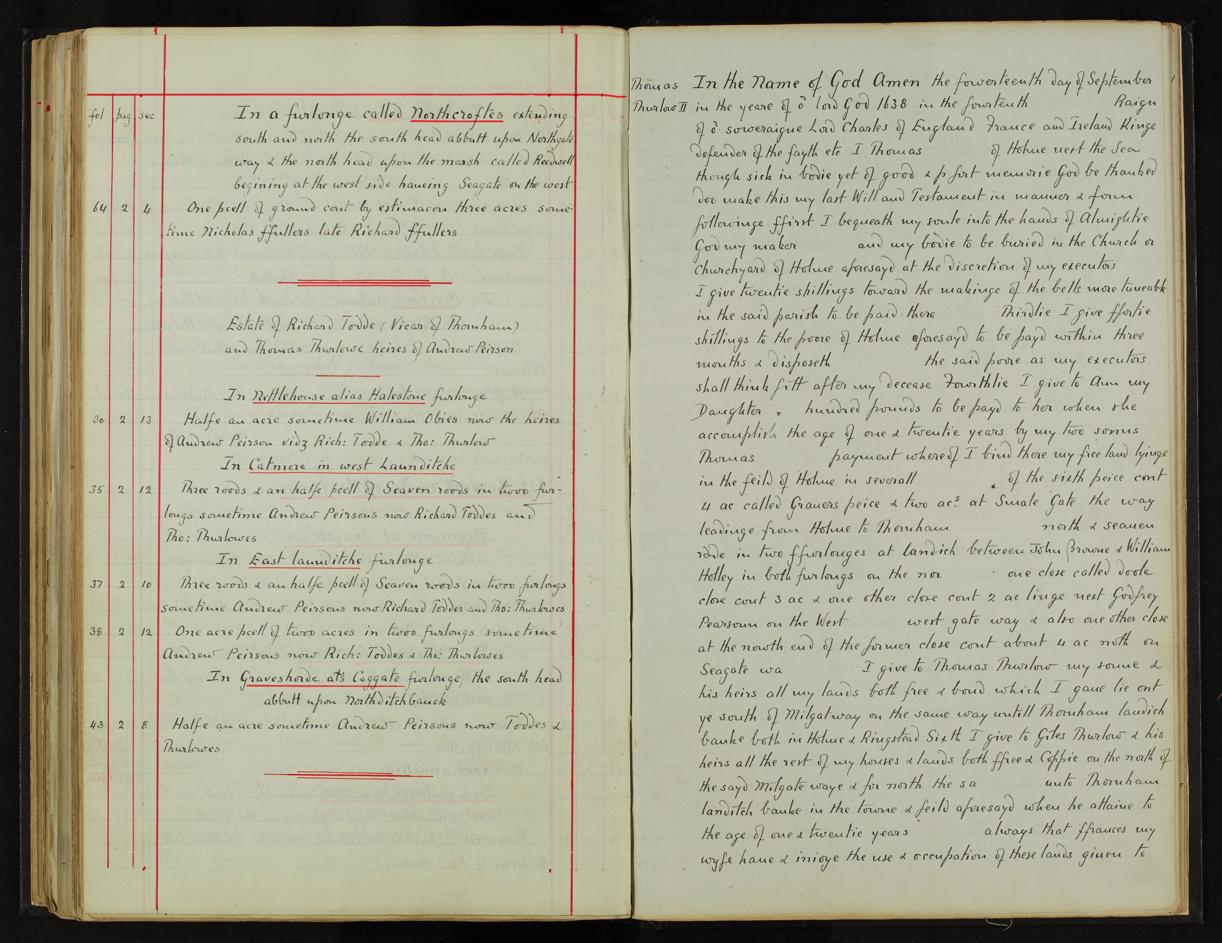 fol pag sec
In a furlonge called Northcroftes extending
south and north the south head abbutt upon Northgate
way & the north head upon the marsh called Reedwell
begining at the west side haueing Seagate on the west
64 2 4 One pcell of ground cont by estimacon three acres some-
time Nicholas ffullers late Richard ffullers
Estate of Richard Todde (Vicar of Thornham)
and Thomas Thurlowe heires of Andrew Peirson
In Nettlehouse alias Halestone furlonge
30 2 13 Halfe an acre sometime William Obies now the heires
of Andrew Peirson vidz Rich: Todde & Tho: Thurlow
In Catmere in west Launditche
35 2 12 Three roods & an halfe pcell of Seaven roods in twoo fur-
longs sometime Andrew Peirsons now Richard Toddes and
Tho: Thurlowes
In East launditche furlonge
37 2 10 Three roods & an halfe pcell of Seaven roods in twoo furlongs
sometime Andrew Peirsons now Richard Toddes and Tho: Thurlowes
38 2 12 One acre pcell of twoo acres in twoo furlongs sometime
Andrew Peirsons now Rich: Toddes & Tho: Thurlowes
In Graveshorde als Coggate furlonge, the south head
abbutt upon Northditchbanck
43 2 8 Halfe an acre sometime Andrew Peirsons now Toddes &
Thurlowes
Thomas In the Name of God Amen the fowerteenth day of September
Thurlow II in the yeare of or lord God 1638 in the fourteenth Raign
of or soweraigne Lord Charles of England France and Ireland Kinge
defender of the fayth etc I Thomas of Holme next the Sea
though sick in bodie yet of good & p fort memorie God be thanked
doo make this my last Will and Testament in manner & form
followinge ffirst I bequeath my soule into the hands of Almightie
God my maker and my bodie to be buried in the Church or
Churchyard of Holme aforesayd at the discretion of my executors
I give twentie shillings toward the makinge of the bells more tuneable
in the said parish to be paid there Thirdlie I give ffortie
shillings to the poore of Holme aforesayd to be payd within three
months & disposeth the said poore as my executors
shall think fitt after my decease Fowrthlie I give to Ann my
Daughter hundred pounds to be payd to her when she
accomplish the age of one & twentie years by my two sonns
Thomas payment whereof I bind there my free land lyinge
in the feild of Holme in severall of the sixth peice cont
4 ac called Grauers peice & two acs. at Smale Gate the way
leadinge from Holme to Thornham north & seauen
rode in two ffurlonges at landich between John Browne & William
Holley in both furlongs on the nor one close called doole
close cont 3 ac & one other close cont 2 ac linge next Godfrey
Pearsoun on the West west gate way & also one other close
at the nowth end of the former close cont about 4 ac noth on
Seagate wa I give to Thomas Thurlow my sonne &
his heirs all my lands both free & bond which I gaue lie ont
ye south of Milgatway on the same way untill Thornham landich
banke both in Holme & Ringstead Sixth I give to Giles Thurlow & his
heirs all the rest of my houses & lands both ffree & Coppie on the north of
the sayd Milgate waye & for north the sa unto Thornham
landitch banke in the towne & feild aforesayd when he attaine to
the age of one & twentie years always that ffrances my
wyfe haue & inioye the use & occupation of these lands giuen to